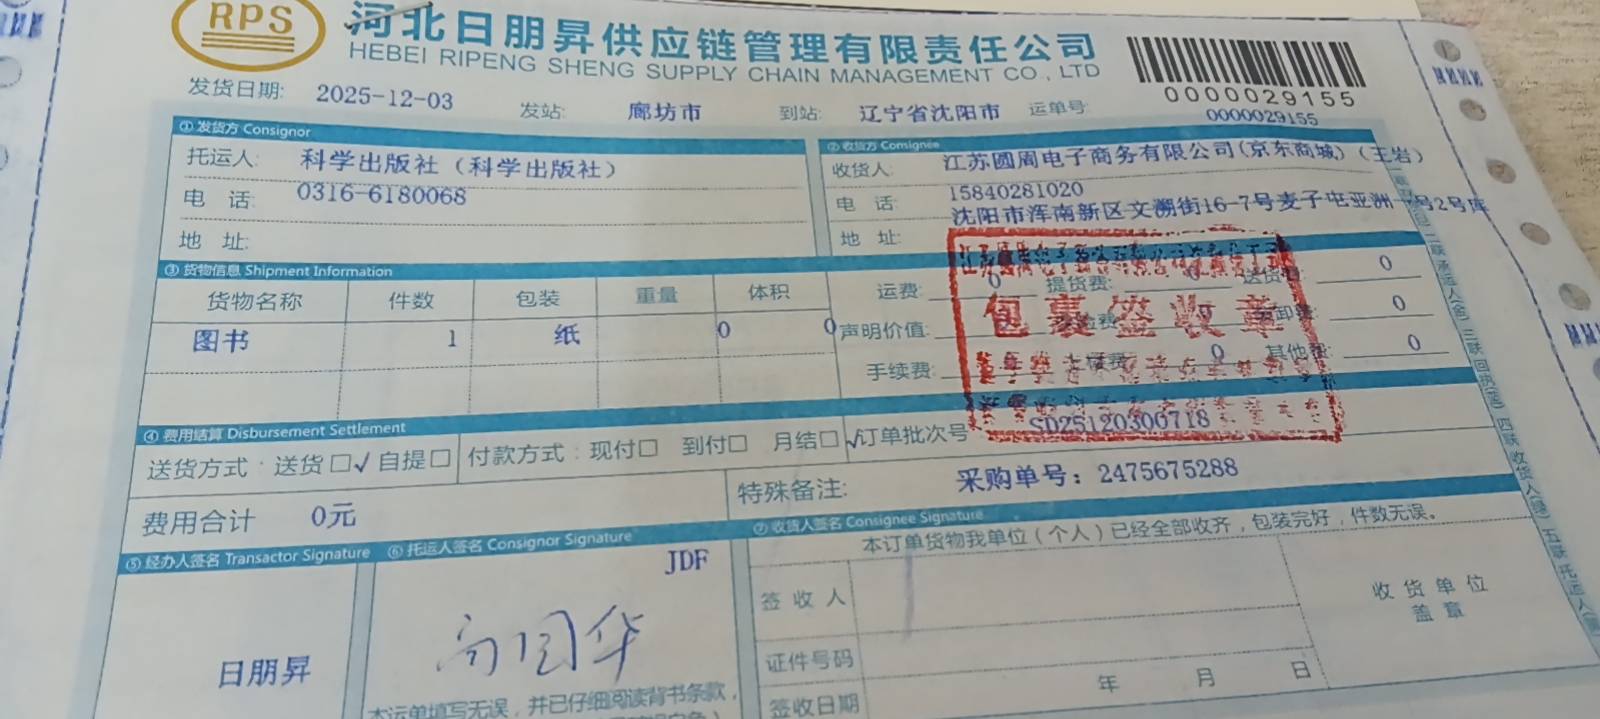 RPS
河北日朋昇供应链管理有限责任公司
HEBEI RIPENG SHENG SUPPLY CHAIN MANAGEMENT CO., LTD
0000029155
发货日期: 2025-12-03 发站: 廊坊市 到站: 辽宁省沈阳市 运单号: 0000029155
① 发货方 Consignor
② 收货方 Comignee
托运人: 科学出版社（科学出版社）
收货人: 江苏圆周电子商务有限公司(京东商城)（王岩）
电 话: 0316-6180068
电 话: 15840281020
地 址:
地 址: 沈阳市浑南新区文溯街16-7号麦子屯亚洲一号2号库
③ 货物信息 Shipment Information
货物名称 件数 包装 重量 体积
图书 1 纸 0 0
运费: 0 提货费: 0 送货费: 0
声明价值: 0
手续费: 0 其他费: 0
包裹签收章
④ 费用结算 Disbursement Settlement
送货方式: 送货 □√ 自提 □ 付款方式: 现付□ 到付□ 月结□√ 订单批次号 SD25120300718
费用合计 0元
特殊备注: 采购单号: 2475675288
⑤ 经办人签名 Transactor Signature
⑥ 托运人签名 Consignor Signature
⑦ 收货人签名 Consignee Signature
日朋昇
JDF
本运单填写无误，并已仔细阅读背书条款，
本订单货物我单位（个人）已经全部收齐，包装完好，件数无误。
签收人
证件号码
签收日期 年 月 日
收货单位
盖章